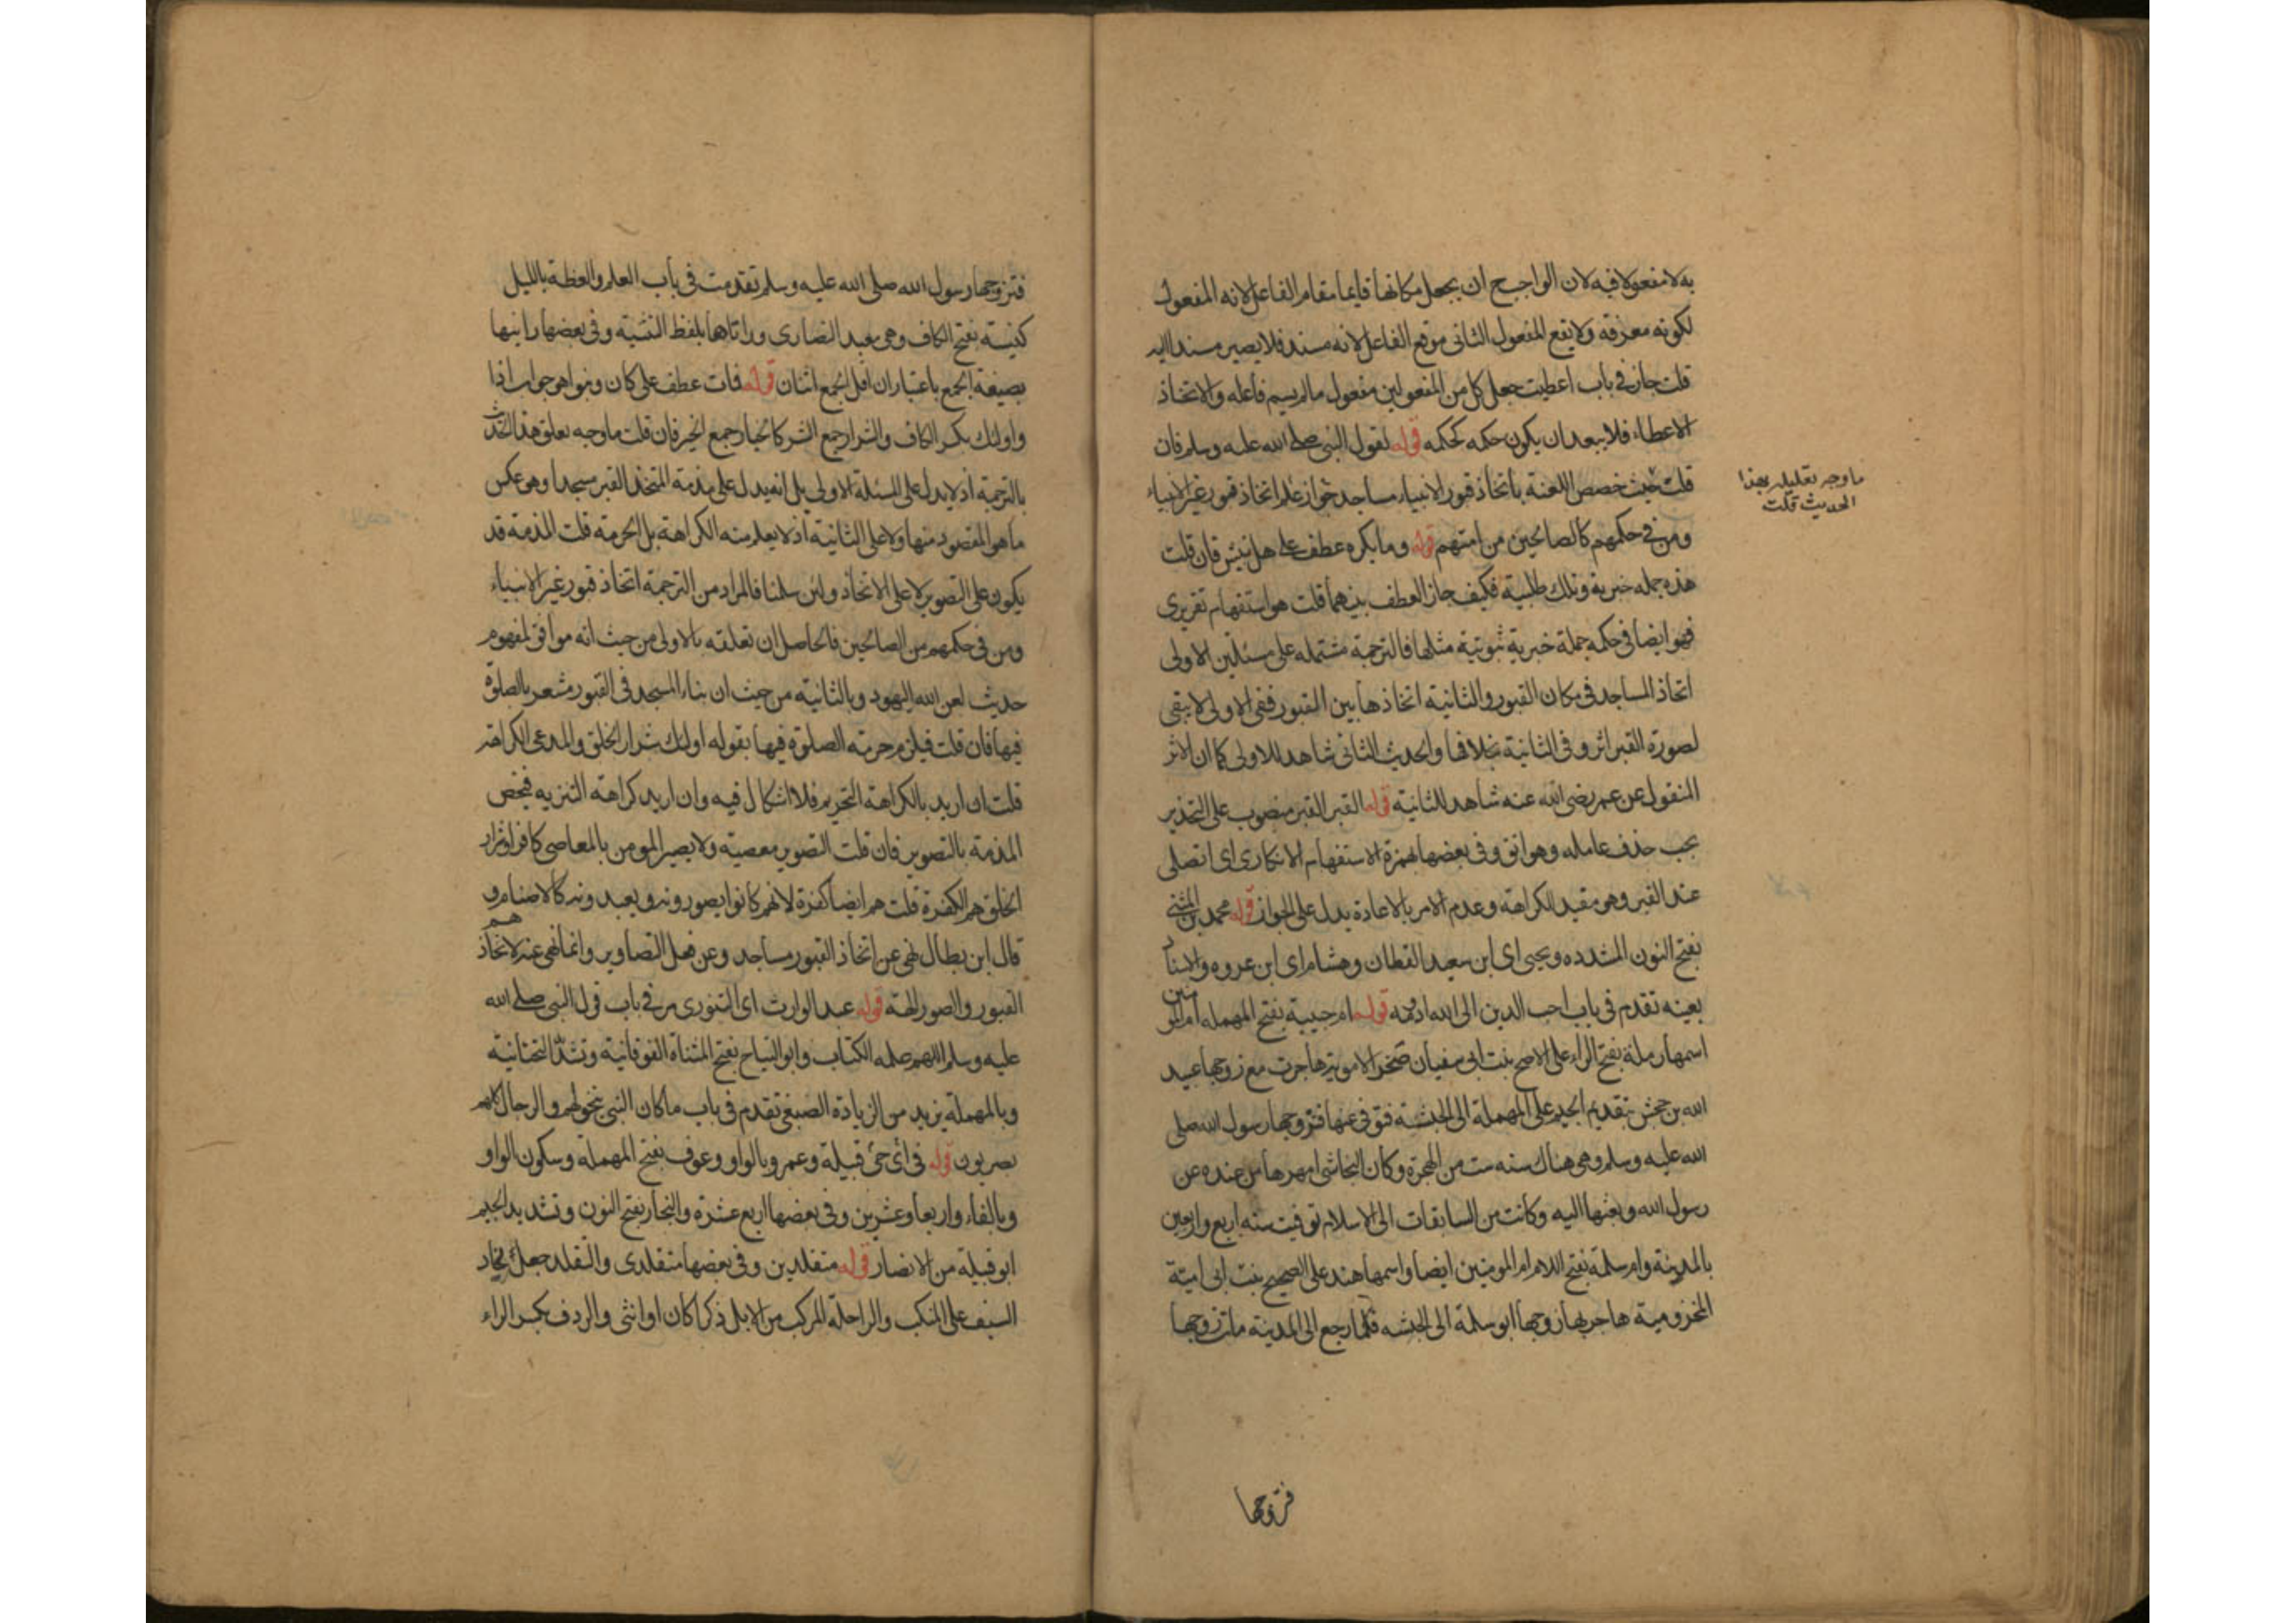 به لا مفعولا فيه لان الواجب ح ان يجعل مكانها قايما مقام الفاعل لانه المفعول
لكونه معرفة ولا يقع المفعول الثاني موقع الفاعل لانه مسند فلا يصير مسندا اليه
قلت جاز في باب اعطيت جعل كل من المفعولين مفعول ما لم يسم فاعله والاتخاذ
الاعطاء فلا يبعد ان يكون حكمه كحكمه قوله لقول النبي صلى الله عليه وسلم فان
قلت حيث خصص اللعنة باتخاذ قبور الانبياء مساجد جواز علم اتخاذ قبور غير الانبياء
ما وجه تعليله بهذا
الحديث قلت
ومن في حكمهم كالصالحين من امتهم قوله وما يكره عطف على هل نبش فان قلت
هذه جمله خبرية وتلك طلبية فكيف جاز العطف بينهما قلت هو استفهام تقريري
فهو ايضا في حكمه جملة خبرية ثبوتية مثلها فالترجمة مشتمله على مسئلتين الاولى
اتخاذ المساجد في مكان القبور والثانية اتخاذها بين القبور ففي الاولى لا يبقى
لصورة القبر اثر وفي الثانية بخلافها والحديث الثاني شاهد للاولى كما ان الاثر
المنقول عن عمر رضي الله عنه شاهد للثانية قوله القبر القبر منصوب على التحذير
يجب حذف عامله وهو اتق وفي بعضها بهمزة الاستفهام الانكاري اي اتصلي
عند القبر وهو مقيد الكراهة وعدم الامر بالاعادة يدل على الجواز قوله محمد بن المثنى
بفتح النون المشدده ويحيى اي ابن سعيد القطان وهشام اي ابن عروه والاسناد
بعينه تقدم في باب احب الدين الى الله ادومه قوله ام حبيبة بفتح المهمله ام المومنين
اسمها رملة بفتح الراء على الاصح بنت ابي سفيان صخر الاموية هاجرت مع زوجها عبيد
الله بن جحش بتقديم الجيم على المهملة الى الحبشة فتوفي عنها فتزوجها رسول الله صلى
الله عليه وسلم وهي هناك سنه ست من الهجرة وكان النجاشي امهرها من عنده عن
رسول الله وبعثها اليه وكانت من السابقات الى الاسلام توفيت سنه اربع واربعين
بالمدينة وام سلمة بفتح اللام ام المومنين ايضا واسمها هند على الصحيح بنت ابي امية
المخزومية هاجر بها زوجها ابو سلمة الى الحبشه فلما رجع الى المدينة مات زوجها
فتزوجها
فتزوجها رسول الله صلى الله عليه وسلم تقدمت في باب العلم والعظة بالليل
كنيسة بفتح الكاف وهي معبد النصارى وراتاها بلفظ التثنية وفي بعضها راينها
بصيغة الجمع باعتبار ان اقل الجمع اثنان قوله فات عطف على كان وبنوا هو جواب اذا
واولئك بكسر الكاف والشرار جمع الشر كالخيار جمع الخير فان قلت ما وجه تعلق هذا الحديث
بالترجمة اذ لا يدل على المسئلة الاولى بل انه يدل على مذمة المتخذ القبر مسجدا وهو عكس
ما هو المقصود منها ولا على الثانية اذ لا يعلم منه الكراهة بل الحرمة قلت المذمة قد
يكون على التصوير لا على الاتخاذ ولئن سلمنا فالمراد من الترجمة اتخاذ قبور غير الانبياء
ومن في حكمهم من الصالحين فالحاصل ان تعلقه بالاولى من حيث انه موافق لمفهوم
حديث لعن الله اليهود وبالثانية من حيث ان بناء المسجد في القبور مشعر بالصلوة
فيها فان قلت فيلزم حرمة الصلوة فيها بقوله اولئك شرار الخلق والمدعى الكراهة
قلت ان اريد بالكراهة التحريم فلا اشكال فيه وان اريد كراهة التنزيه فيخص
المذمة بالتصوير فان قلت التصوير معصية ولا يصير المومن بالمعاصي كافرا وشرار
الخلق هم الكفرة قلت هم ايضا كفرة لانهم كانوا يصورونه ويعبدونه كالاصنام و
قال ابن بطال نهى عن اتخاذ القبور مساجد وعن فعل التصاوير وانما نهى عنه لاتخاذهم
القبور والصور الهة قوله عبد الوارث اي التنوري مر في باب قول النبي صلى الله
عليه وسلم اللهم علمه الكتاب وابو التياح بفتح المثناة الفوقانية وتشد التحتانية
وبالمهملة يزيد من الزيادة الضبعي تقدم في باب ما كان النبي يتخولهم والرجال كلهم
بصريون قوله في اي حي قبيلة وعمرو بالواو وعوف بفتح المهملة وسكون الواو
وبالفاء واربعا وعشرين وفي بعضها اربع عشرة والنجار بفتح النون وتشديد الجيم
ابو قبيلة من الانصار قوله متقلدين وفي بعضها متقلدي والتقلد جعل نجاد
السيف على المنكب والراحلة المركب من الابل ذكرا كان او انثى والردف بكسر الراء